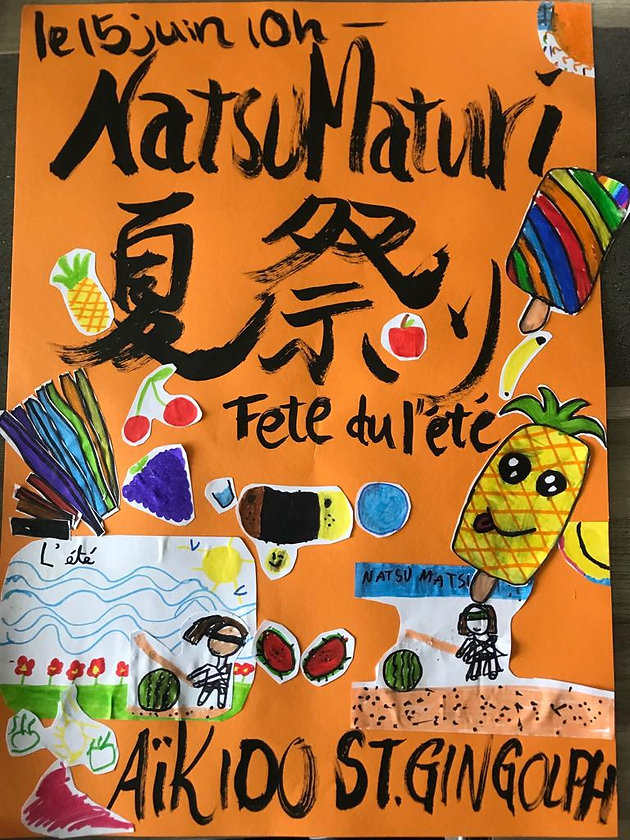 le 15 juin 10h –
NatsuMaturi
夏祭り
Fete du l'été
L'été
NATSU MATSI
AïKIDO ST.GINGOLPH